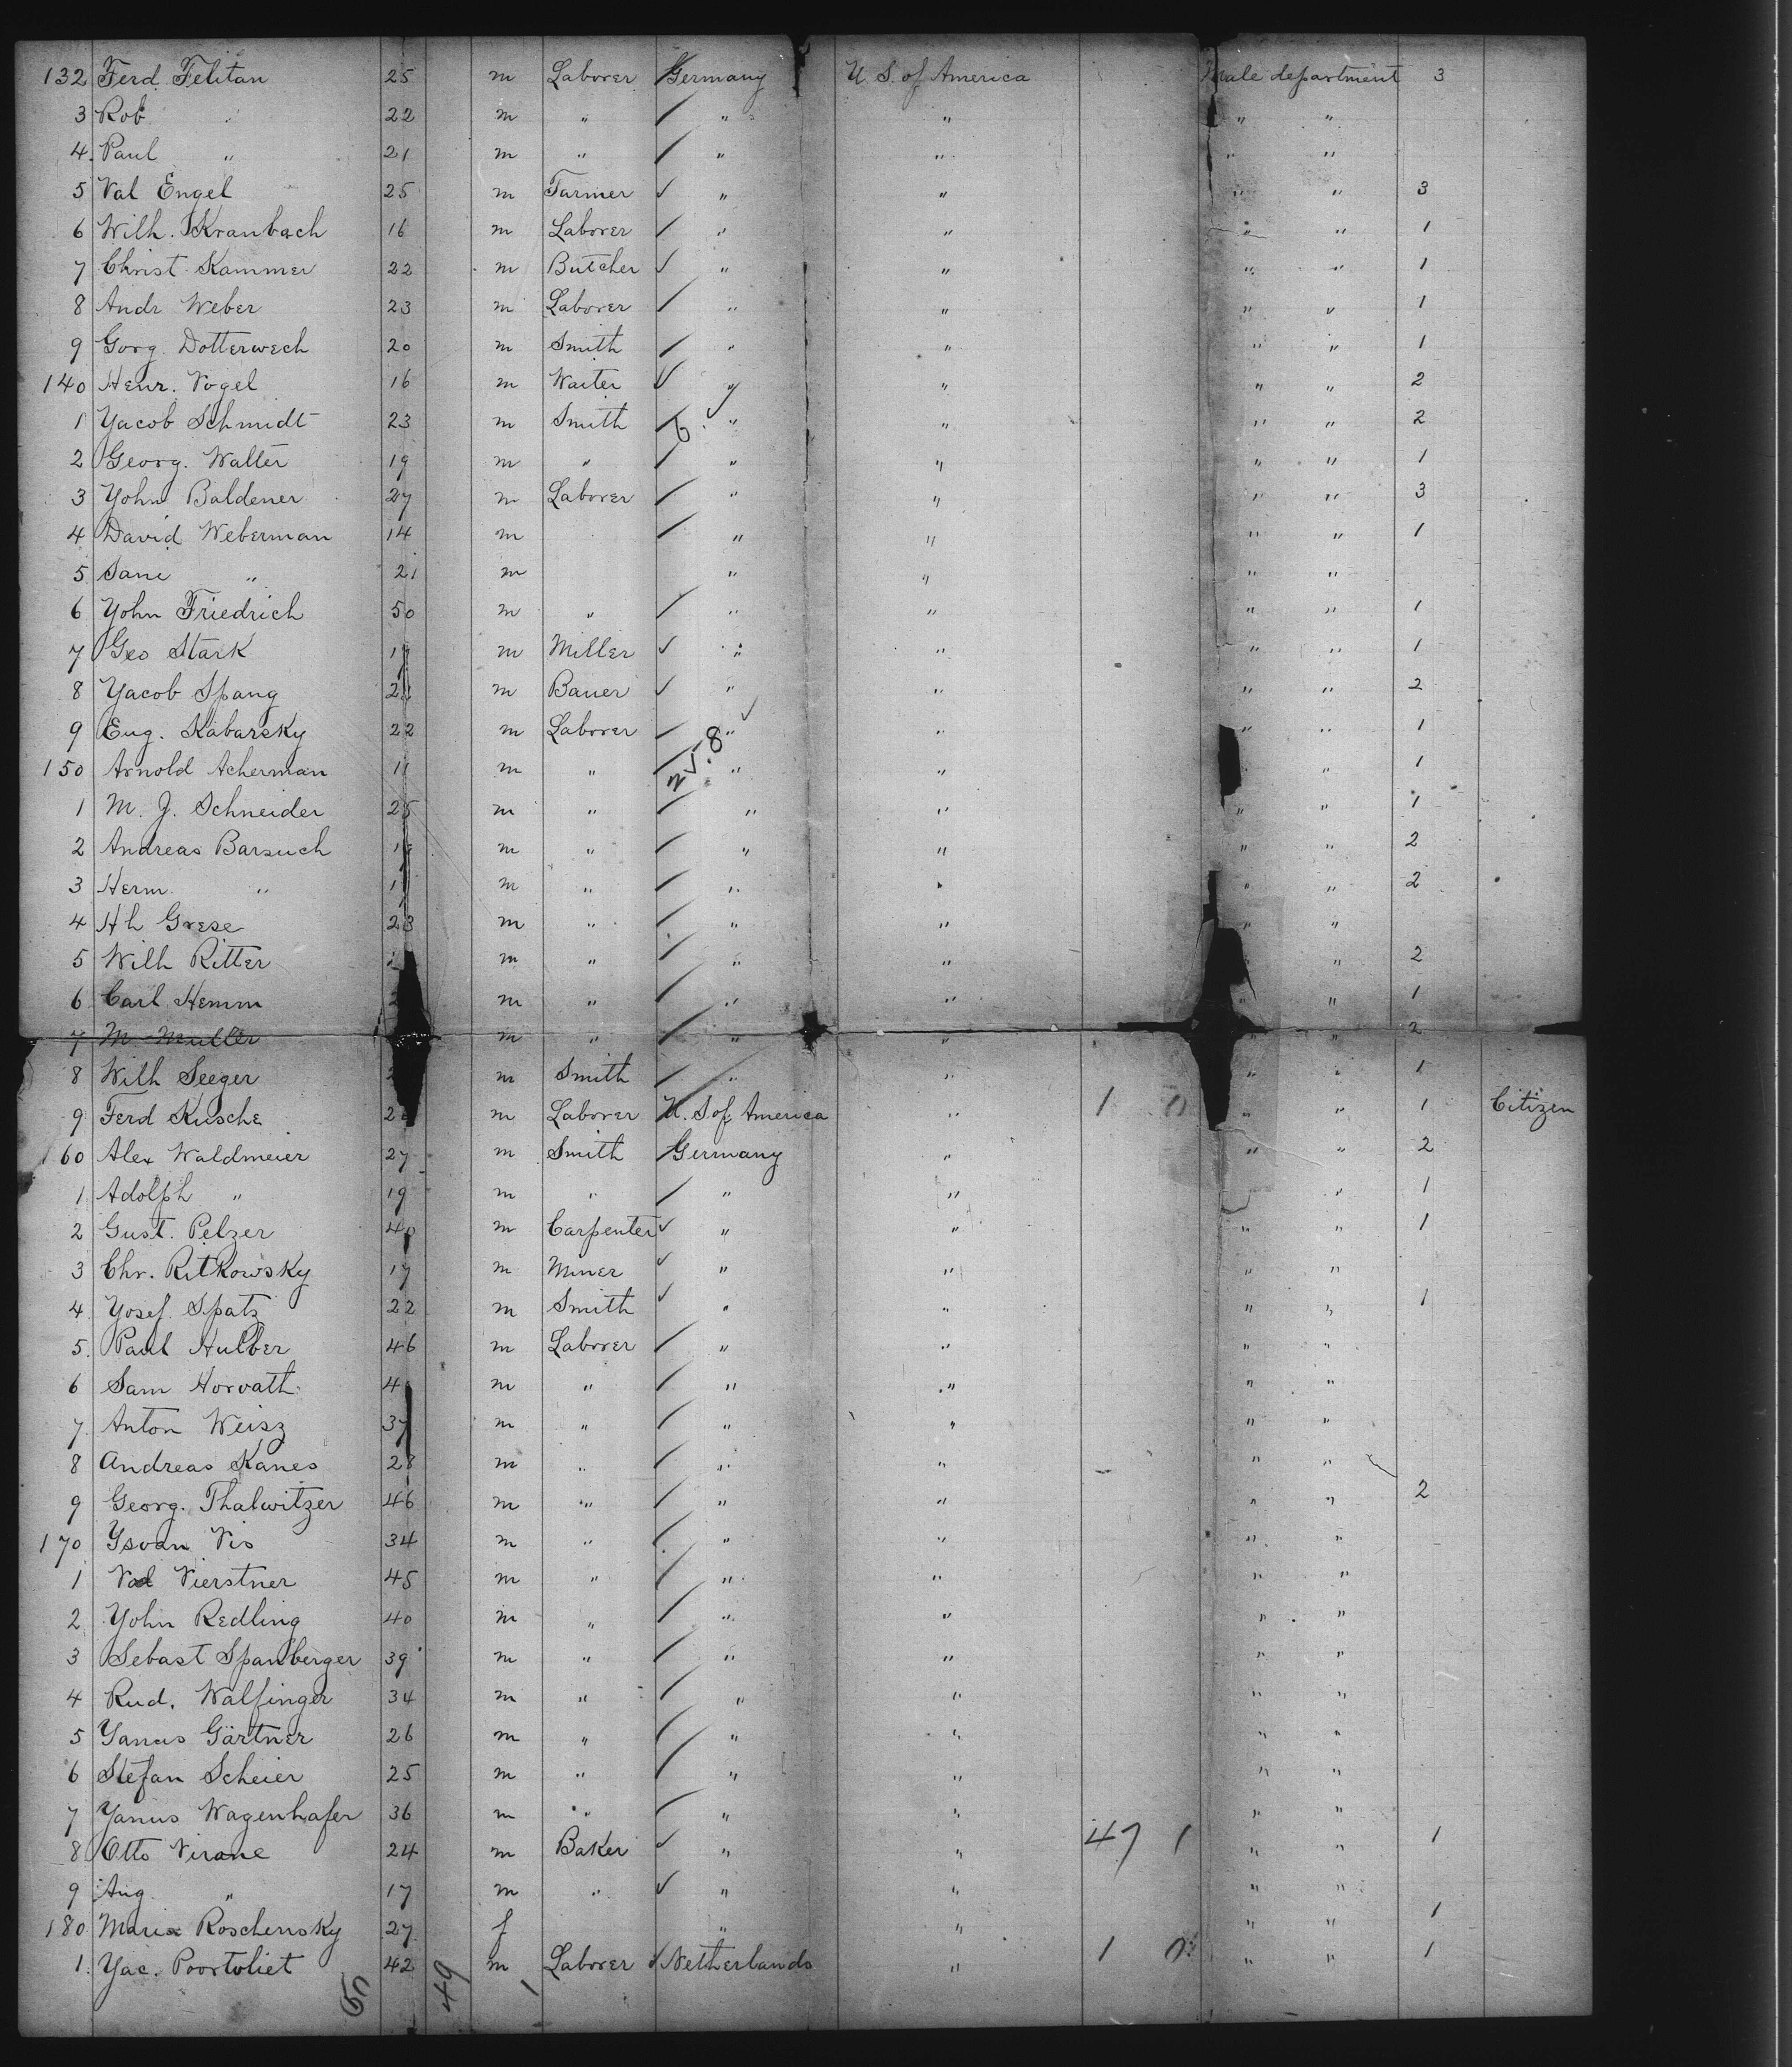 132 Ferd. Felitan 25 m Laborer Germany U S. of America Male department 3
3 Rob. " 22 m " " " " "
4. Paul " 21 m " " " " "
5 Val Engel 25 m Farmer ✓ " " " " 3
6 Wilh. Kranbach 16 m Laborer " " " " 1
7 Christ Kammer 22 m Butcher ✓ " " " " 1
8 Andr Weber 23 m Laborer " " " " 1
9 Gorg. Dotterwech 20 m Smith " " " " 1
140 Henr. Vogel 16 m Waiter ✓ " " " " 2
1 Yacob Schmidt 23 m Smith " " " " 2
2 Georg. Walter 19 m " " " " " 1
3 Yohn Baldener 27 m Laborer " " " " 3
4 David Weberman 14 m " " " " 1
5. Sane " 21 m " " " "
6 Yohn Friedrich 50 m " " " " " 1
7 Geo Stark m Miller ✓ " " " " 1
8 Yacob Spang m Bauer ✓ " " " " 2
9 Eug. Kabarsky 22 m Laborer " " " " 1
150 Arnold Acherman 11 m " " " " " 1
1 M. J. Schneider 25 m " " " " " 1
2 Andreas Barsuch m " " " " " 2
3 Herm " m " " " " " 2
4 Hh Grese 23 m " " " "
5 Wilh Ritter m " " " " 2
6 Carl Hemm m " " " " " 1
7 M Muller m " " " " " 2
8 Wilh Seeger m Smith " " " " 1
9 Ferd Kusche m Laborer U. S of America " 1 0 " " 1 Citizen
160 Alex Waldmeier 27 m Smith Germany " " " 2
1 Adolph " 19 m " " " " 1
2 Gust. Pelzer 40 m Carpenter ✓ " " " " 1
3 Chr. Ritkowsky 17 m Miner ✓ " " " "
4. Yosef Spatz 22 m Smith ✓ " " " " 1
5. Paul Hulber 46 m Laborer " " " "
6 Sam Horvath m " " " " "
7. Anton Weisz 37 m " " " " "
8 Andreas Kanes 28 m " " " " "
9 Georg. Thalwitzer 46 m " " " " " 2
170 Ysvan Vis 34 m " " " " "
1 Val Vierstner 45 m " " " " "
2 Yohn Redling 40 m " " " " "
3 Sebast Spanberger 39 m " " " " "
4 Rud. Walfinger 34 m " " " " "
5 Yanus Gärtner 26 m " " " " "
6 Stefan Scheier 25 m " " " " "
7 Yanus Wagenhafer 36 m " " " " "
8 Otto Virane 24 m Baker ✓ " " 47 1 " " 1
9 Aug " 17 m " ✓ " " " "
180 Maria Roschensky 27 f " " " " 1
1. Yac. Poortvliet 42 m Laborer ✓ Netherlands " 1 0 " " 1
49 1